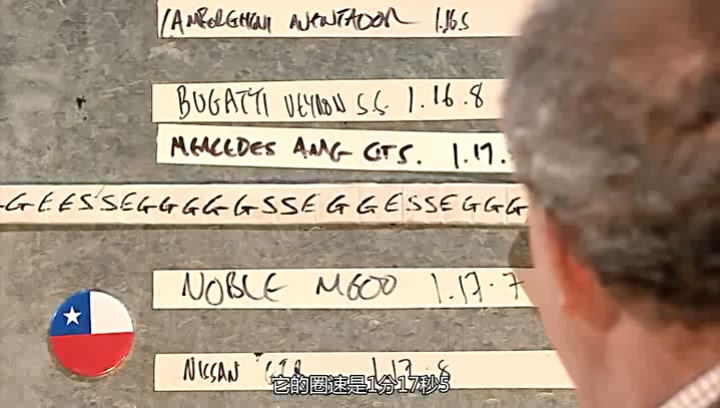 LAMBORGHINI AVENTADOR 1.16.5
BUGATTI VEYRON S.S. 1.16.8
MERCEDES AMG GTS. 1.17.
GEESSEGGGGGSSEGGESSEGGG
NOBLE M600 1.17.7
NISSAN GTR 1.17.8
它的圈速是1分17秒5